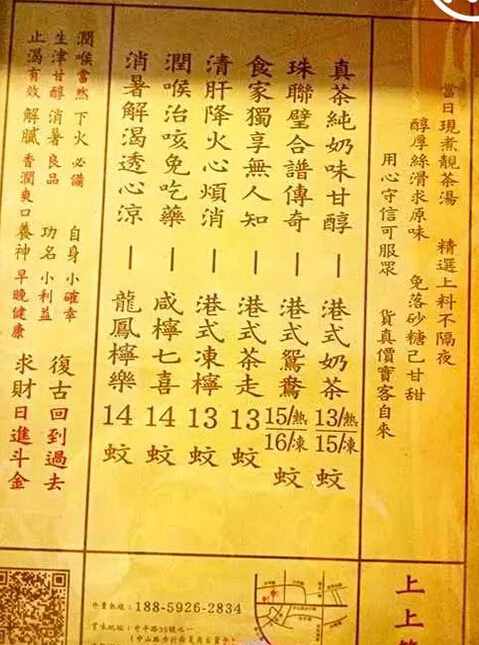 當日現煮靚茶湯 精選上料不隔夜
醇厚絲滑求原味 免落砂糖已甘甜
用心守信可服眾 貨真價實客自來
真茶純奶味甘醇 — 港式奶茶 13/熱 15/凍 蚊
珠聯璧合譜傳奇 — 港式鴛鴦 15/熱 16/凍 蚊
食家獨享無人知 — 港式茶走 13 蚊
清肝降火心煩消 — 港式凍檸 13 蚊
潤喉治咳免吃藥 — 咸檸七喜 14 蚊
消暑解渴透心涼 — 龍鳳檸樂 14 蚊
潤喉當然 下火必備 自身小確幸 復古回到過去
生津甘醇 消暑良品 功名小利益
止渴有效 解膩香潤爽口養神 早晚健康 求財日進斗金
上上
188-5926-2834